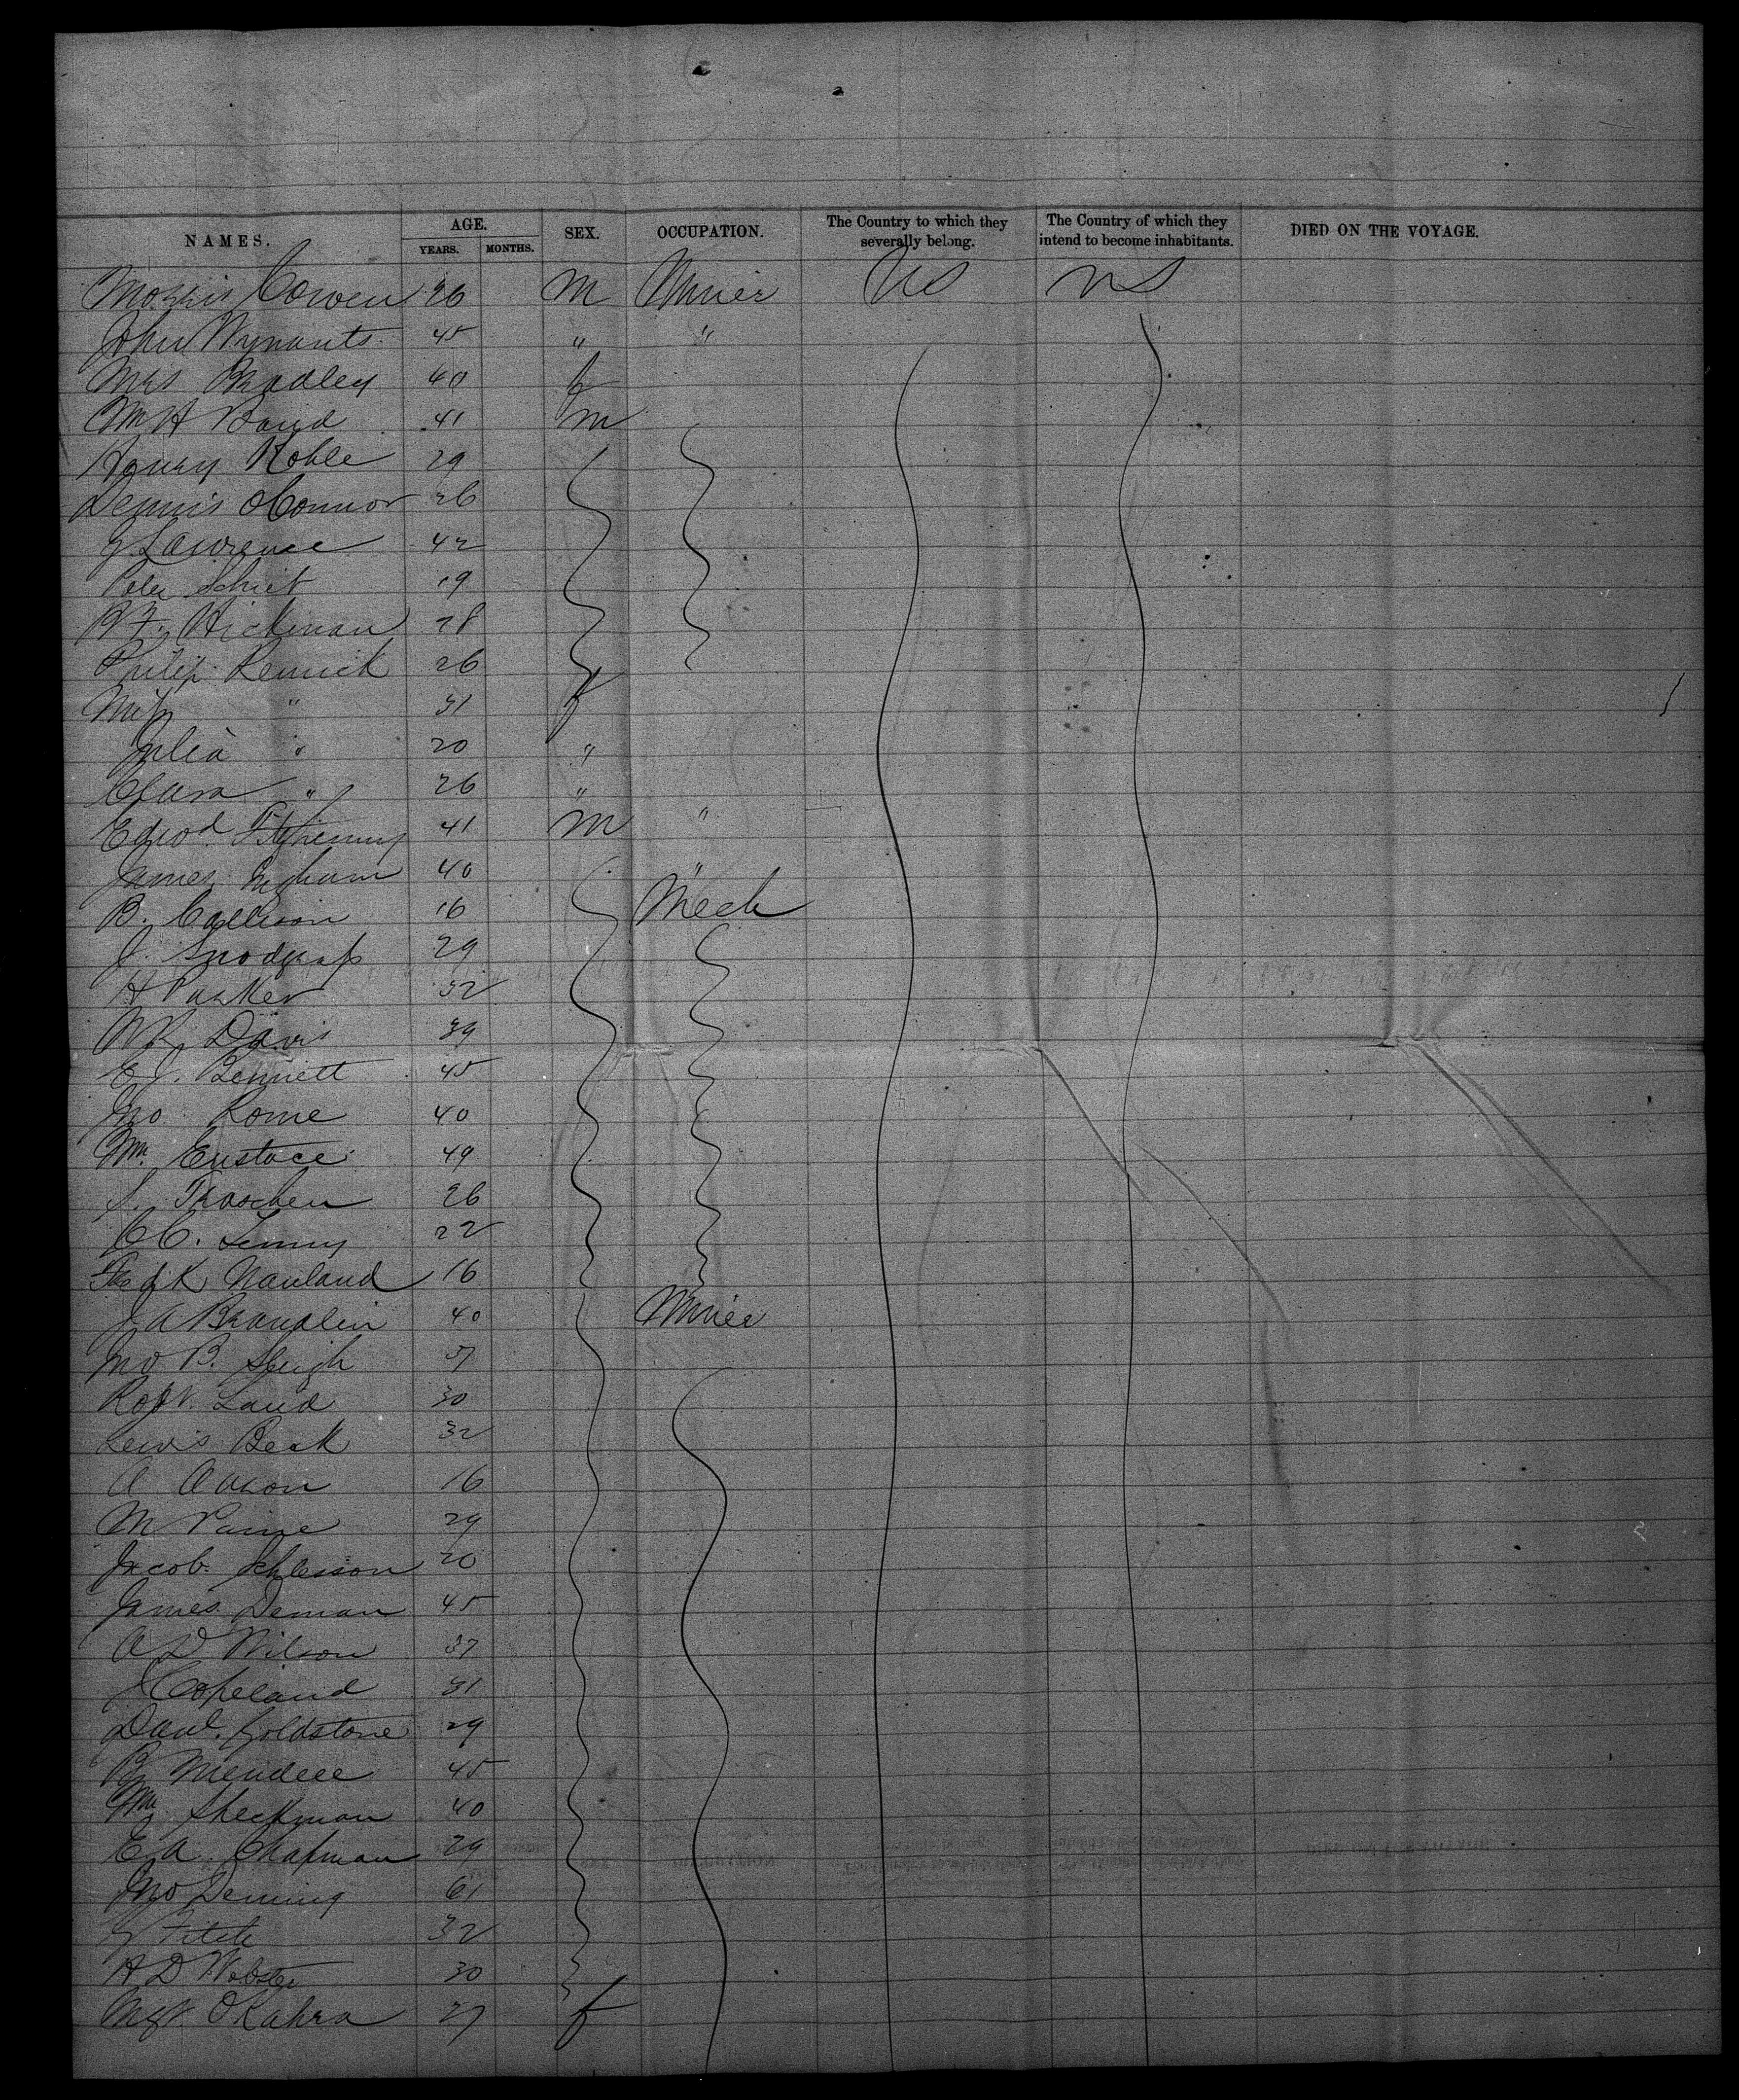 NAMES. AGE. YEARS. MONTHS. SEX. OCCUPATION. The Country to which they severally belong. The Country of which they intend to become inhabitants. DIED ON THE VOYAGE.
Morris Cowen 26 M Miner US US
John Wynants 45 " "
Mrs Bradley 40 f
Wm H Baird 41 m
Henry Kohle 29
Dennis OConnor 26
G Lawrence 42
Peter 19
Hickman 28
Philip Rennick 26
" 31 f
Julia " 20 "
Clara " 26 "
Edwd 41 m "
James Ingham 40 "
B. Callison 16 Mech
J. Snodgrass 29
H Parker 32
Davis 39
E J. Bennett 45
Jno Rome 40
Wm. Eustace 49
S. Traschen 26
C C. 22
Fredk Nauland 16
J. A Brandlin 40 Miner
Jno B. Sleigh 37
Robt. Laud 30
Lewis Beck 32
A 16
M Paine 29
Jacob Schlesson 20
James Deman 45
A D Wilson 37
J Copeland 31
Danl. Goldstone 29
45
Wm 40
E A. Chapman 29
Jno Deming 61
Fitch 32
H D Webster 30
Mgt OKahra 27 f